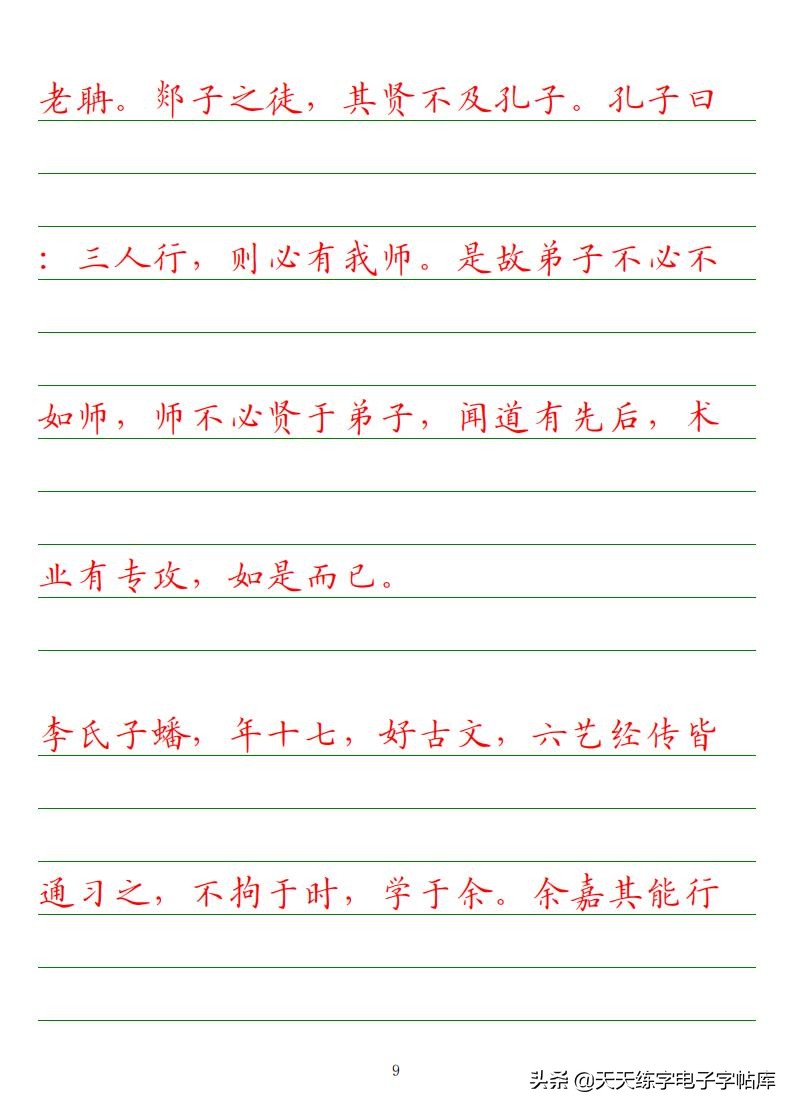 老聃。郯子之徒，其贤不及孔子。孔子曰
：三人行，则必有我师。是故弟子不必不
如师，师不必贤于弟子，闻道有先后，术
业有专攻，如是而已。
李氏子蟠，年十七，好古文，六艺经传皆
通习之，不拘于时，学于余。余嘉其能行
9
头条 @天天练字电子字帖库